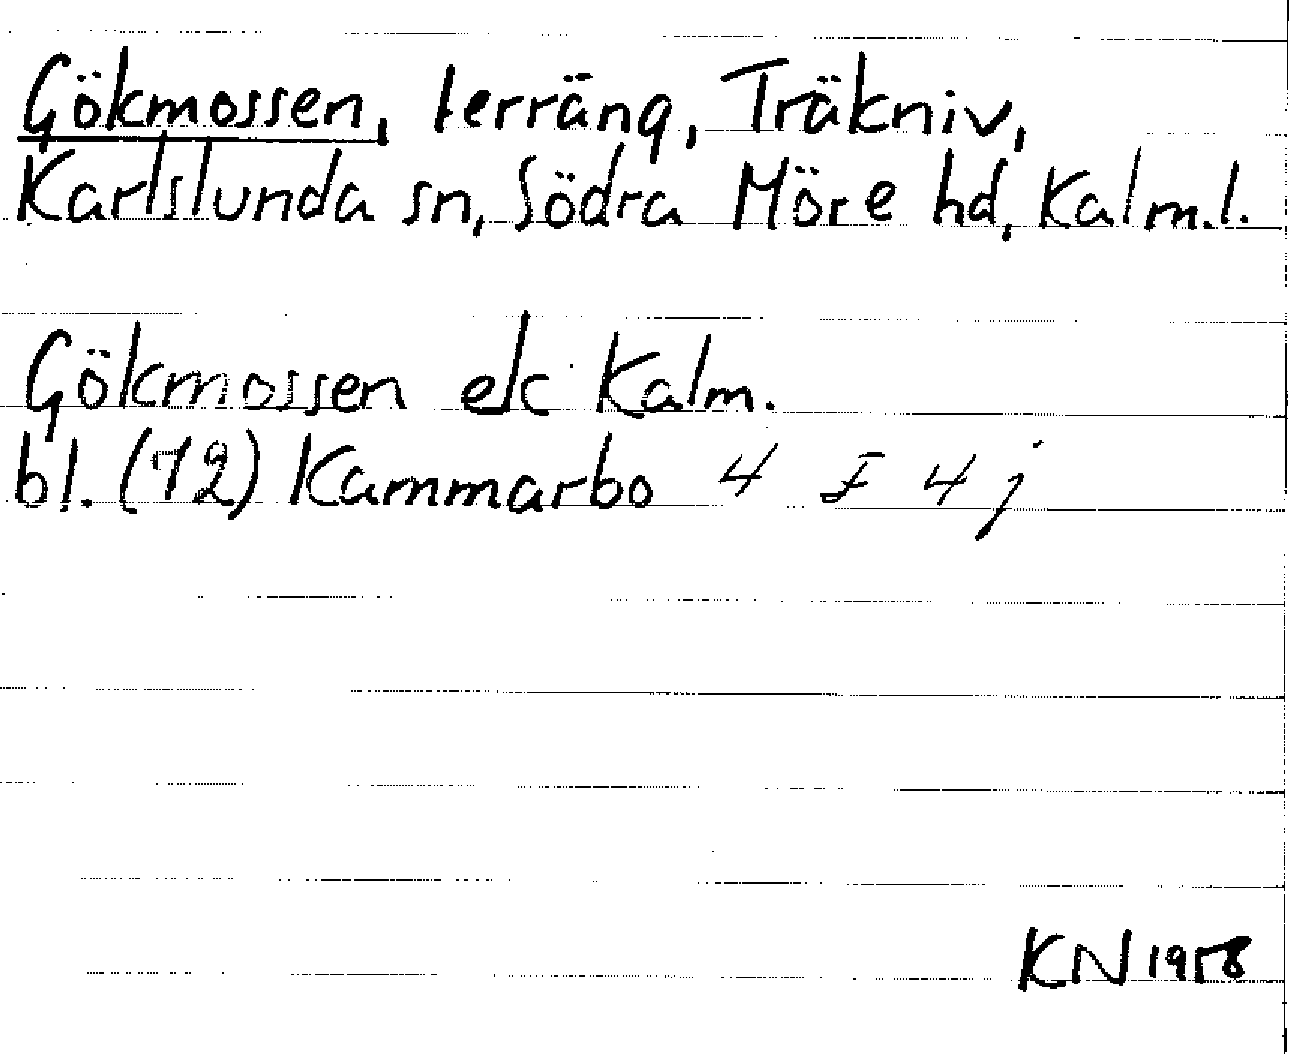 Gökmossen, terräng, Träkniv,
Karlslunda sn, Södra Möre hd, Kalm.l.
Gökmossen ek Kalm.
bl. (72) Kammarbo 4 F 4 j
KN 1958